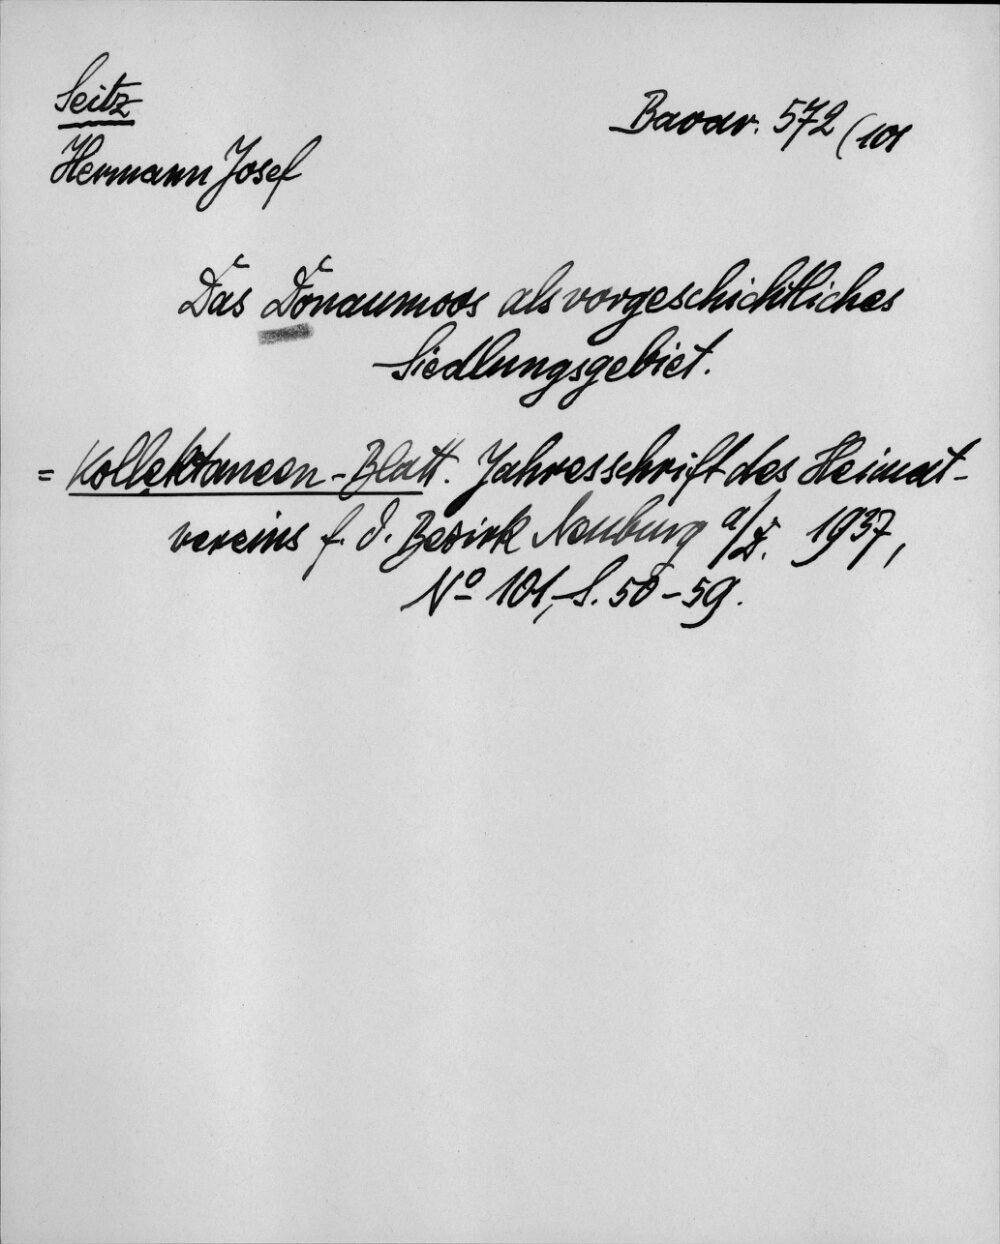 Seitz
Hermann Josef
Bavar. 572 (101
Das Donaumoos als vorgeschichtliches
Siedlungsgebiet.
= Kollektaneen-Blatt. Jahresschrift des Heimat-
vereins f. d. Bezirk Neuburg a/D. 1937,
No 101, S. 50-59.